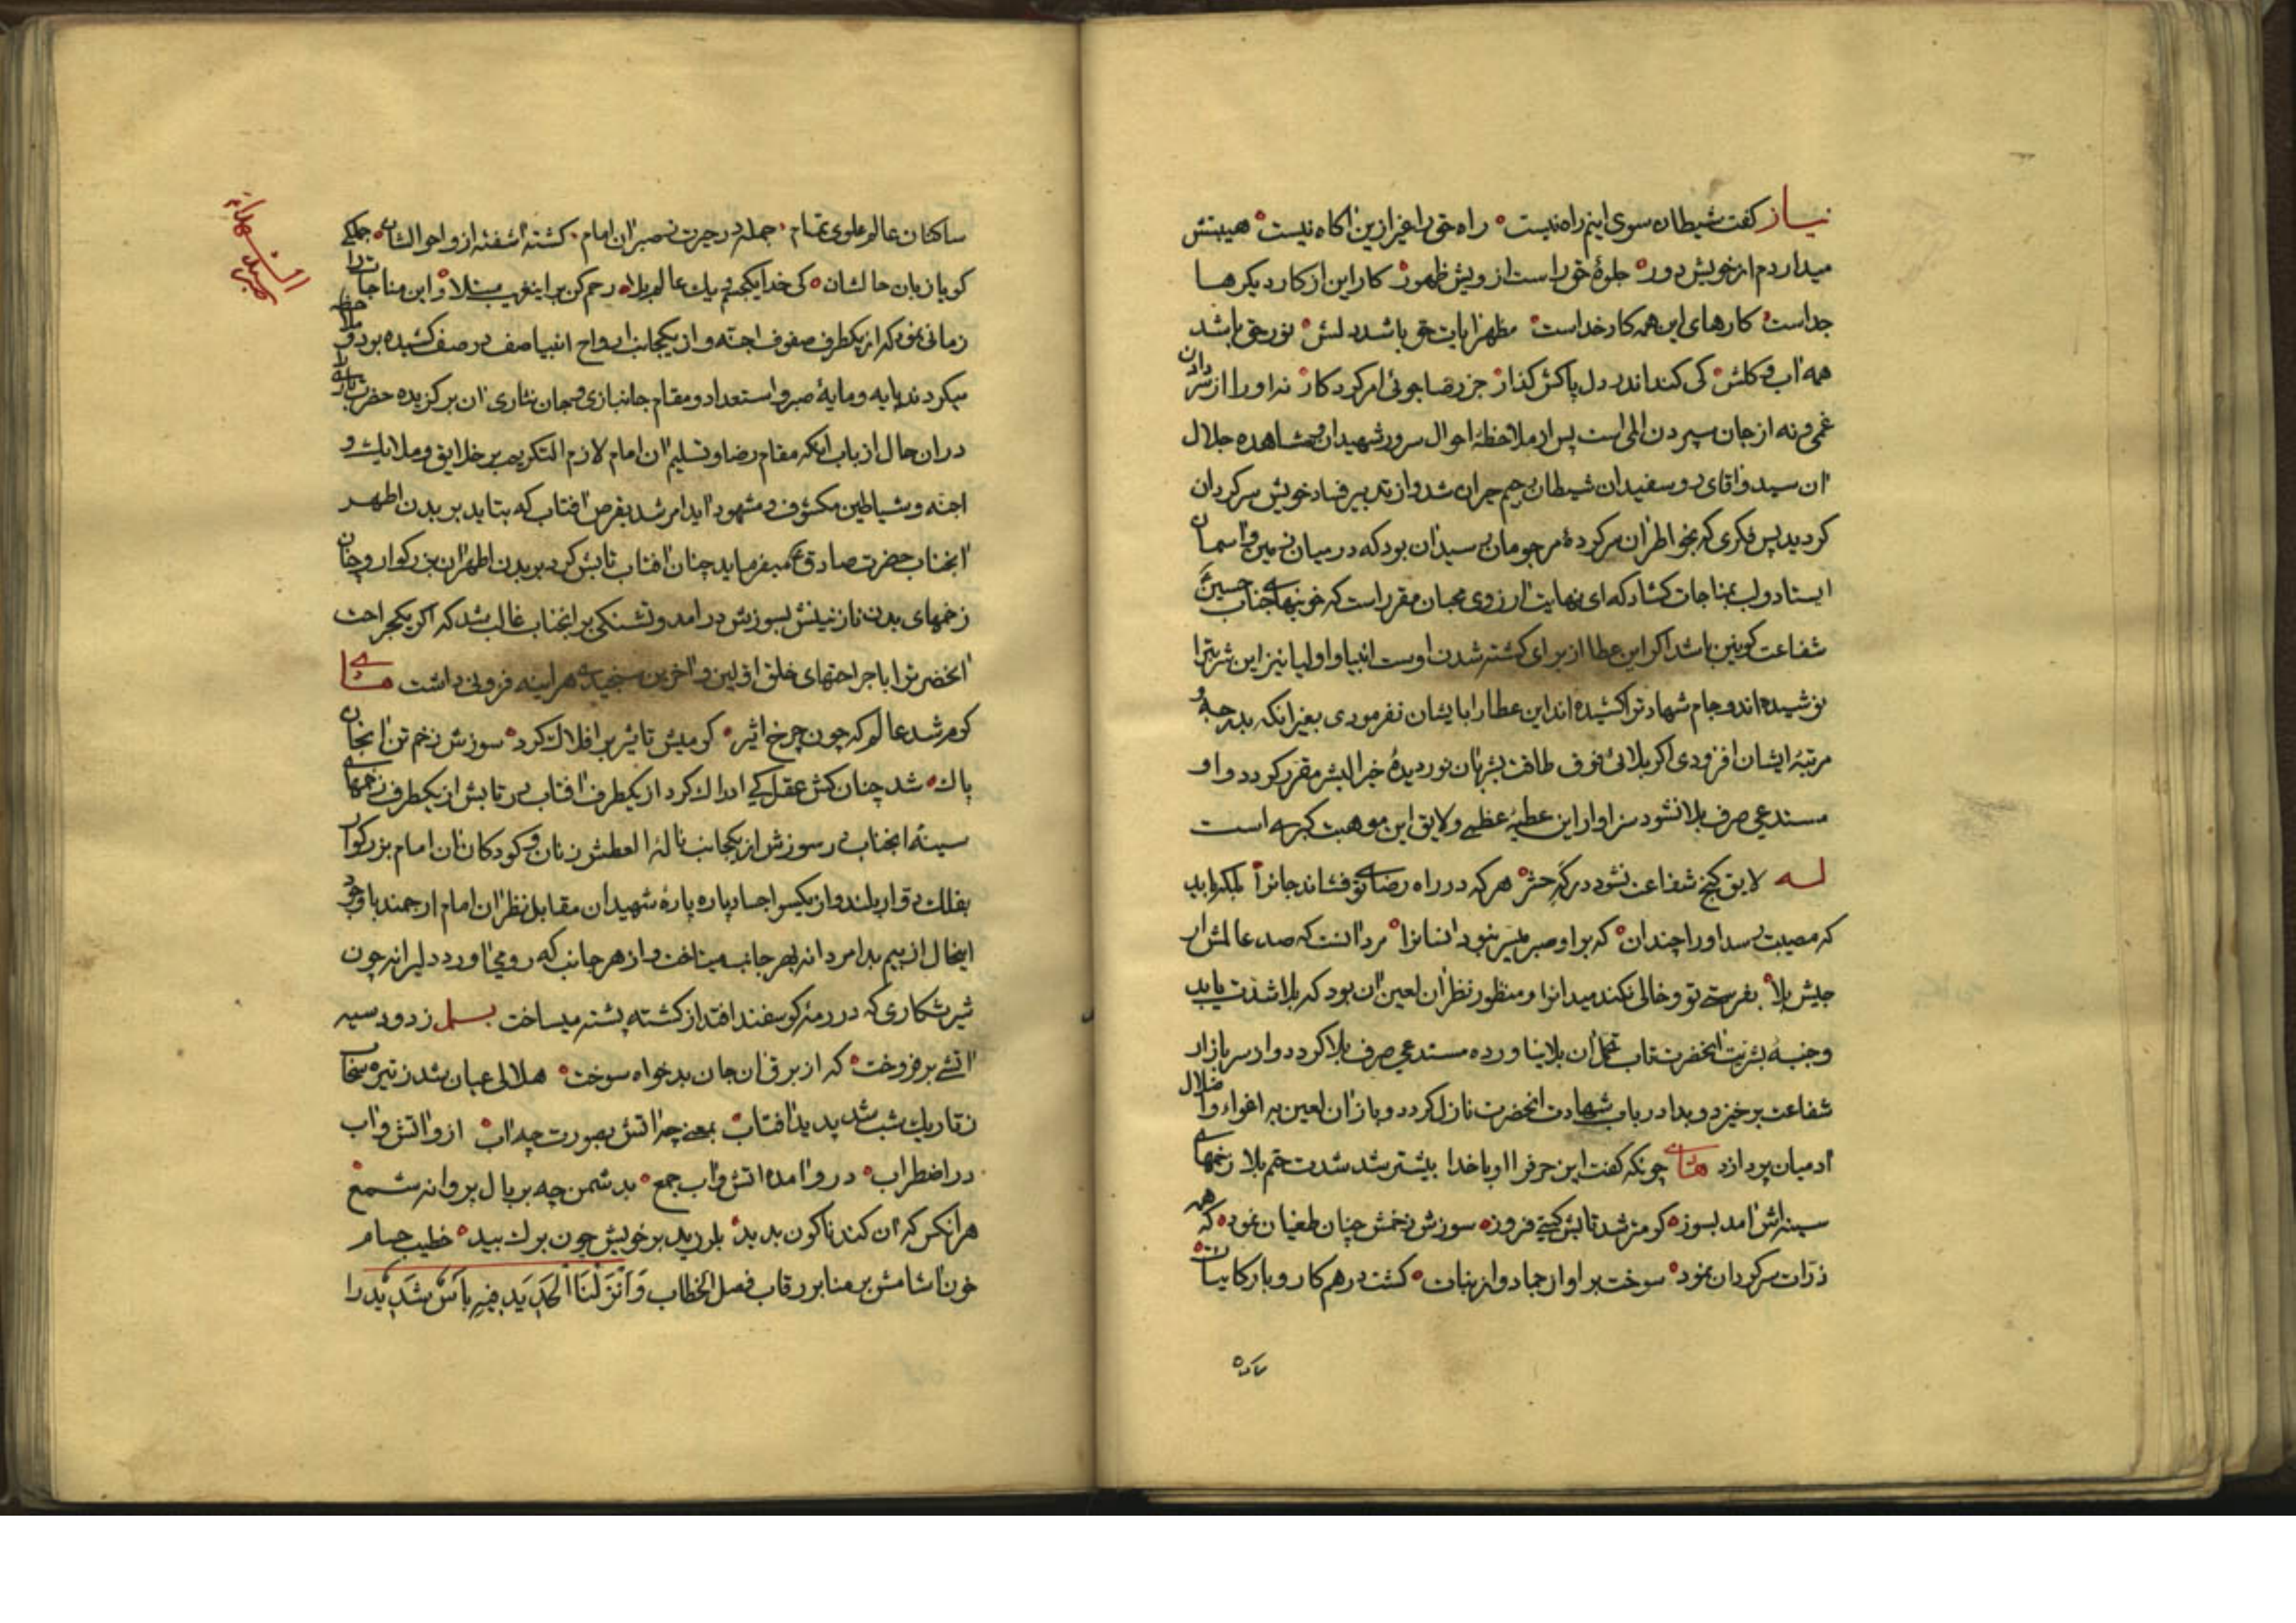 نیاز کفت شیطان سوی اینم راه نیست راه حق را غیر ازین اکاه نیست هیبتش
میداردم از خویش دور جلوهٔ حق راست از رویش ظهور کار این از کار دیکرها
جداست کارهای این همه کار خداست مظهر ایات حق باشد دلش نور حق باشد
همه اب و کلش کی کند اندر دل پاکش کذار جز رضاجوئی امر کردکار نه او را از سردادن
غمی و نه از جان سپردن المی است پس از ملاحظهٔ احوال سرور شهیدان و مشاهده جلال
ان سید و اقای رو سفیدان شیطان رجیم حیران شد و از تدبیر فساد خویش سرکردان
کردید پس فکری که بخواطر ان سرکردهٔ مرجومان رسید ان بود که در میان زمین و اسمان
ایستاد و لب بمناجات کشاد که ای نهایت ارزوی محبان مقرر است که خونبهای جناب حسین
شفاعت کونین باشد اکر این عطا از برای کشته شدن اوست انبیا و اولیا نیز این شربترا
نوشیده‌اند و جام شهادترا کشیده‌اند این عطا را بایشان نفرمودی بغیر انکه بدرجه و
مرتبهٔ ایشان افزودی اکر بلائی فوق طاقت بشر بان نور دیدهٔ خیر البشر مقرر کردد و او
مستدعی صرف بلا نشود سزاوار این عطیهٔ عظمی و لایق این موهبت کبری است
له لایق کنج شفاعت نشود در که حشر هر که در راه رضای تو فشاند جانرا بلکه باید
که مصیبت رسد او را چندان که بر او صبر میسر نبود انسانرا مرد انست که صد عالمش ار
جیش بلا بفرستی تو و خالی نکند میدانرا و منظور نظر ان لعین ان بود که بلا شدت یابد
و جنبهٔ بشریت انحضرت تاب تحمل ان بلا نیاورده مستدعی صرف بلا کردد و از سر بازار
شفاعت برخیزد و بدا در باب شهادت انحضرت نازل کردد و باز ان لعین به اغواء و اضلال
ادمیان پردازد هسای چونکه کفت این حرفرا او با خدا بیشتر شد شدت ختم بلا زخمهای
سینه‌اش امد بسوز کرمتر شد تابش کیتی فروز سوزش زخمش چنان طغیان نمود که همه
ذرات سرکردان نمود سوخت بر او از جماد و از نبات کشت درهم کار و بار کاینات
ساکنان عالم علوی تمام جمله در حیرت ز صبر ان امام کشته اشفته از و احوالشان جملکی
کویا زبان حالشان کی خدا یکجسم و یک عالم بلا رحم کن بر این غریب مبتلا و این مناجات را
زمانی نمود که از یکطرف صفوف اجنه و از یکجانب ارواح انبیا صف در صف کشیده بود و ملاحظه
میکردند پایه و مایهٔ صبر و استعداد و مقام جانبازی و جان نثاری ان برکزیده حضرت باری را
در ان حال از باب انکه مقام رضا و تسلیم ان امام لازم التکریم بر خلایق و ملایک و
اجنه و شیاطین مکشوف و مشهود اید امر شد بقرص افتاب که بتابد بر بدن اطهر
انجناب حضرت صادق ع میفرماید چنان افتاب تابش کرد بر بدن اطهر ان بزرکوار و چنان
زخمهای بدن نازنینش بسوزش در امد و تشنکی بر انجناب غالب شد که اکر یکجراحت
انحضرترا با جراحتهای خلق اولین و اخرین سنجیدی هر اینه فزونی داشت هسای
کرم شد عالم که چون چرخ اثیر کرمیش تاثیر بر افلاک کرد سوزش زخم تن انجان
پاک شد چنان کش عقل کی ادراک کرد از یکطرف افتاب در تابش از یکطرف زخمهای
سینهٔ انجناب در سوزش از یکجانب نالهٔ العطش زنان و کودکان ان امام بزرکوار
بفلک دوار بلند و از یکسو اجساد پاره پارهٔ شهیدان مقابل نظر ان امام ارجمند با وجود
اینحال از بیم بدا مردانه بهر جانب میتاخت و از هر جانب که رو می اورد دلیرانه چون
شیر شکاری که در رمهٔ کوسفند افتد از کشته پشته میساخت بسمل زدود سیه
اتشی بر فروخت که از برق ان جان بدخواه سوخت هلالی عیان شد ز تیره سحاب
ز تاریک شب شد پدید افتاب بمعنی چه اتش بصورت چه اب ازو اتش و اب
در اضطراب درو امده اتش و اب جمع بدشمن چه بر بال پروانه شمع
هر انکس که ان کندناکون بدید بلرزید بر خویش چون برک بید خطیب حسام
خون اشامش بر منابر رقاب فصل الخطاب وَاَنْزَلْنَا الْحَدِیدَ فِیهِ بَأسٌ شَدِیدٌ را